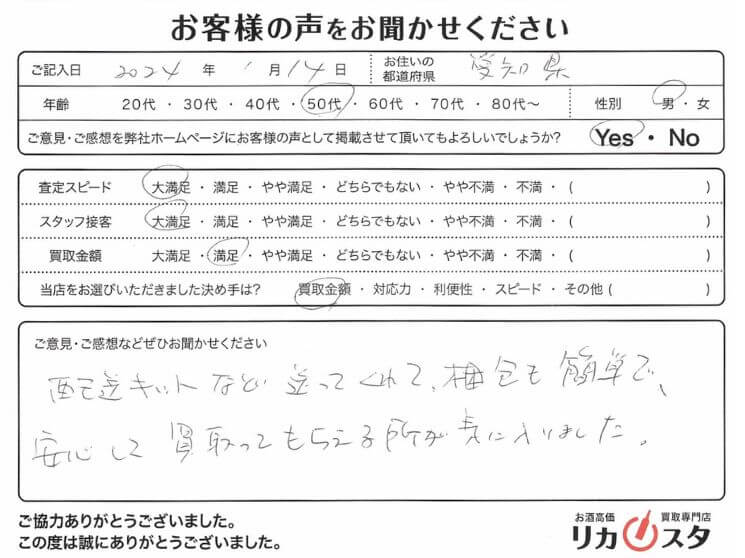 お客様の声をお聞かせください
ご記入日 2024 年 1 月 14 日 お住いの都道府県 愛知県
年齢 20代 ・ 30代 ・ 40代 ・ 50代 ・ 60代 ・ 70代 ・ 80代〜 性別 男 ・ 女
ご意見・ご感想を弊社ホームページにお客様の声として掲載させて頂いてもよろしいでしょうか? Yes ・ No
査定スピード 大満足 ・ 満足 ・ やや満足 ・ どちらでもない ・ やや不満 ・ 不満 ・ ( )
スタッフ接客 大満足 ・ 満足 ・ やや満足 ・ どちらでもない ・ やや不満 ・ 不満 ・ ( )
買取金額 大満足 ・ 満足 ・ やや満足 ・ どちらでもない ・ やや不満 ・ 不満 ・ ( )
当店をお選びいただきました決め手は? 買取金額 ・ 対応力 ・ 利便性 ・ スピード ・ その他 ( )
ご意見・ご感想などぜひお聞かせください
配送キットなど送ってくれて、梱包も簡単で、
安心して買取ってもらえる所が気に入りました。
ご協力ありがとうございました。
この度は誠にありがとうございました。
お酒高価 買取専門店
リカスタ